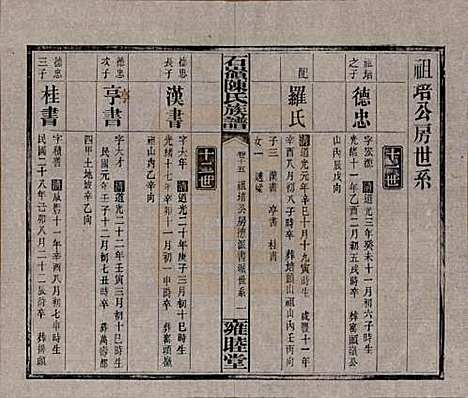 祖培公房世系
十二世
祖培之子
德忠
字宗派 清道光三年癸未十一月初六子時生
光緒十一年乙酉二月初五戌時卒 葬窰頭嶺
山內辰戌向
配
羅氏
清道光元年辛巳十月十九寅時生 咸豐十一年
辛酉八月初八子時卒 葬培頭山祖山內壬丙向
子三 漢書 亨書 桂書
女一 適梁
石嶺陳氏族譜
卷十五 祖培公房德派書派世系 一
雍睦堂
十三世
德忠長子
漢書
字大年 清道光二十年庚子十二月初十巳時生
光緒七年辛巳十一月初一申時卒 葬窰頭嶺
祖山內辛乙向
德忠次子
亨書
字大才 清道光二十二年壬寅三月初十巳時生
民國元年壬子十二月初七丑時卒 葬萬壽都
四甲土地坡辛乙向
德忠三子
桂書
字積善 清咸豐十一年辛酉八月初七申時生
民國二十八年己卯八月二十一寅時卒 葬鵝公嶺